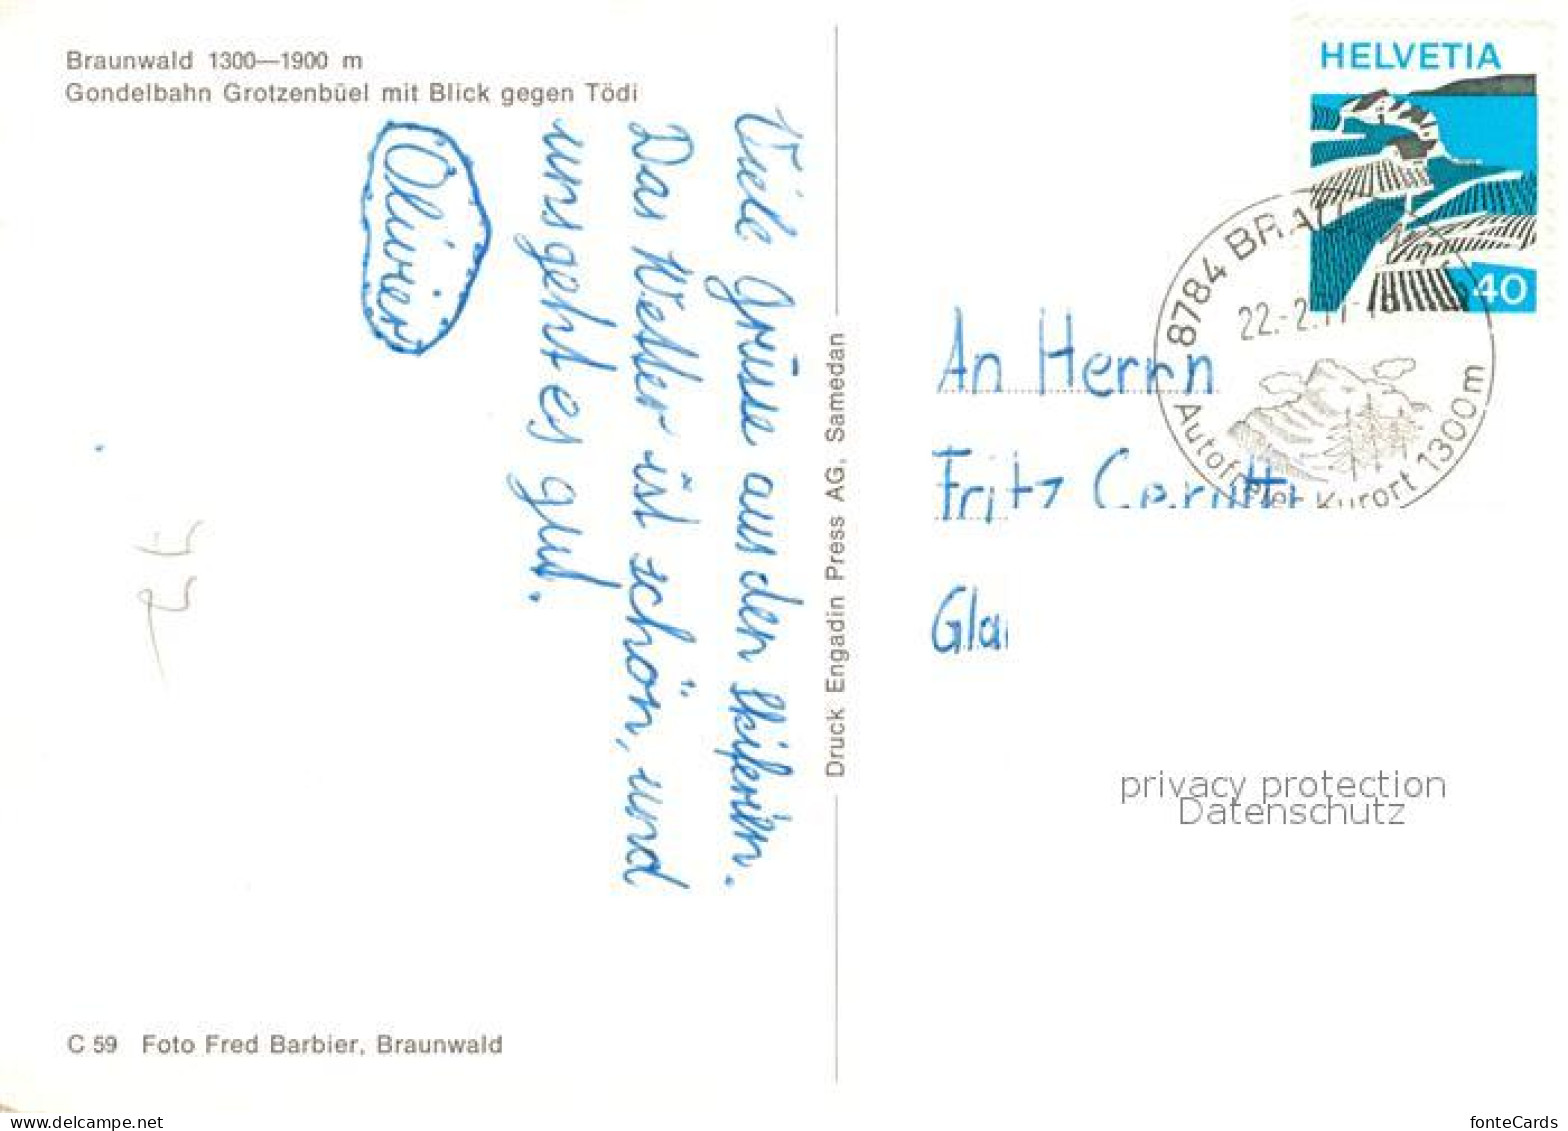 Braunwald 1300—1900 m
Gondelbahn Grotzenbüel mit Blick gegen Tödi
Viele Grüsse aus den Skiferien.
Das Wetter ist schön, und
uns geht es gut.
Olivier
C 59 Foto Fred Barbier, Braunwald
Druck Engadin Press AG, Samedan
HELVETIA
40
8784
22.-2.
Autofreier Kurort 1300m
An Herrn
Fritz
privacy protection
Datenschutz
www.delcampe.net
fonteCards